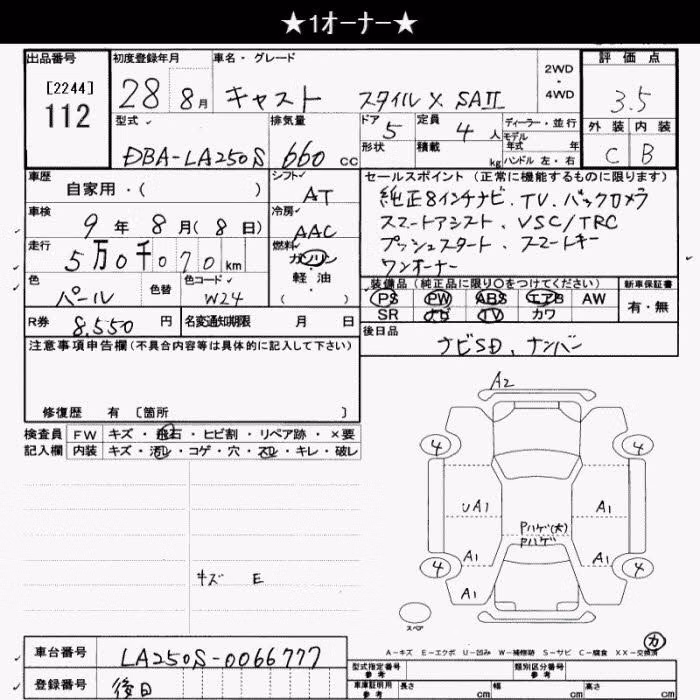 ★1オーナー★
出品番号 初度登録年月 車名・グレード 評価点
[2244]
112
28 8月 キャスト スタイル X SAⅡ
2WD
・
4WD
3.5
型式 排気量 ドア 定員 ディーラー・並行 外装 内装
DBA-LA250S 660 cc 5 4 人 モデル年式 年 C B
形状 積載 kg ハンドル 左・右
車歴
自家用・( )
シフト
AT
セールスポイント(正常に機能するものに限ります)
純正8インチナビ.TV.バックカメラ
スマートアシスト、VSC/TRC
プッシュスタート、スマートキー
ワンオーナー
車検 9年 8月(8日)
冷房 AAC
走行 5万0千070km
燃料 ガソリン・軽油・( )
色 パール 色替 色コード W24
装備品(純正品に限り○をつけてください) 新車保証書
PS PW ABS エアB AW 有・無
SR ナビ TV カワ
R券 8,550円 名変通知期限 月 日
後日品
ナビSD、ナンバー
注意事項申告欄(不具合内容等は具体的に記入して下さい)
修復歴 有 [箇所 ]
検査員 FW キズ・飛石・ヒビ割・リペア跡・×要
記入欄 内装 キズ・汚レ・コゲ・穴・スレ・キレ・破レ
A2
4 4
UA1 A1
Pハゲ(大)
Pハゲ
A1 A1
4 4
A1
キズ E
スペア
カ
A-キズ E-エクボ U-凹み W-補修跡 S-サビ C-腐食 XX-交換済
車台番号 LA250S-0066777
登録番号 後日
型式指定番号 参考 類別区分番号 参考
車庫証明用 参考 長さ cm 幅 cm 高さ cm